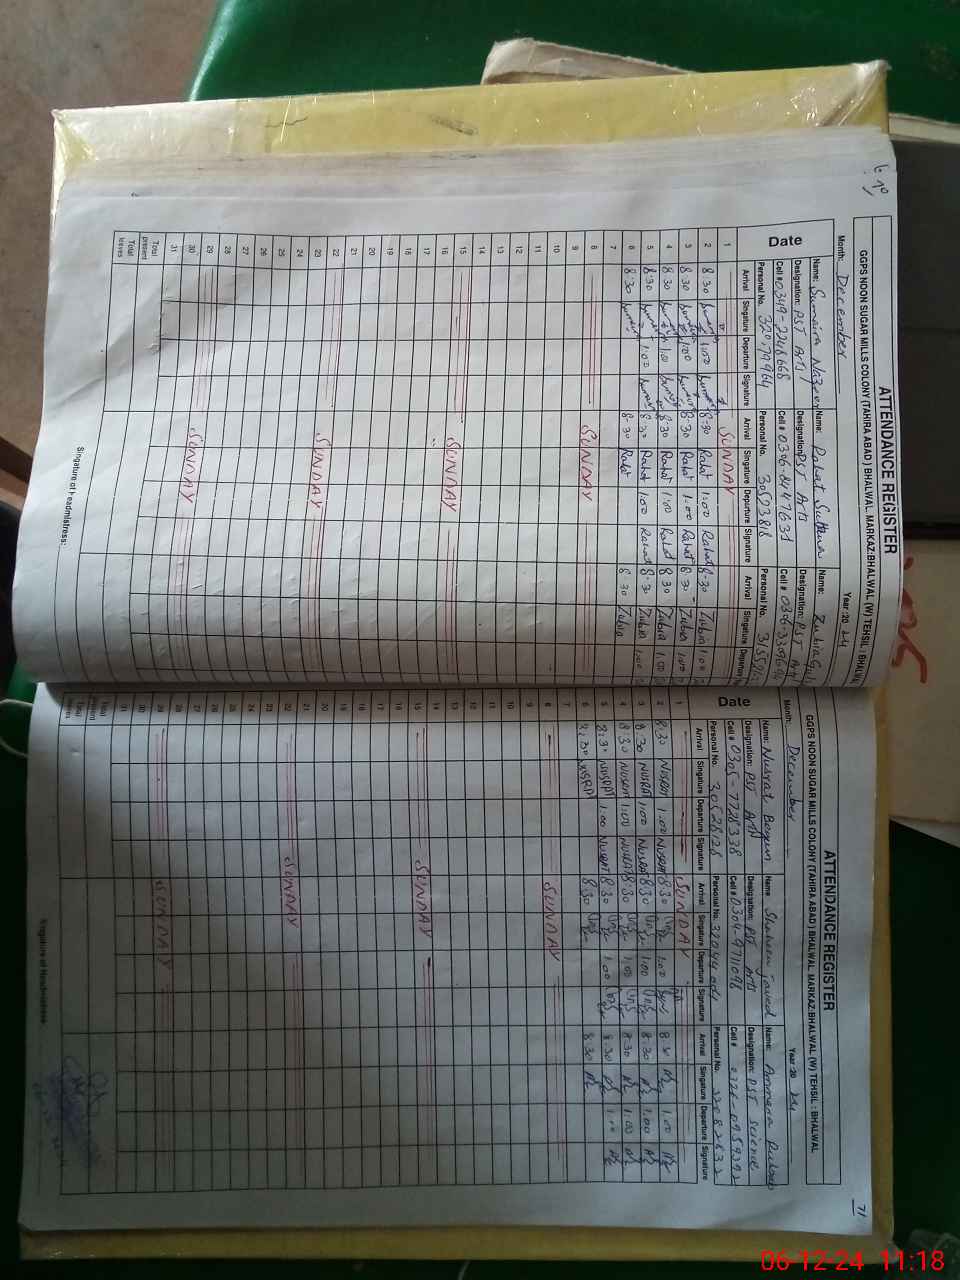 70
ATTENDANCE REGISTER
GGPS NOON SUGAR MILLS COLONY (TAHIRA ABAD) BHALWAL MARKAZ:BHALWAL (W) TEHSIL : BHALWAL
Month: December Year :20 24
Date
Name: Sumaira Nazeer Name: Rahat Sultana Name: Zubia
Designation: PST Arts Designation: PST Arts Designation: PST Arts
Cell # 0349-2248668 Cell # 0306-8447631 Cell #
Personal No. 32079964 Personal No. Personal No.
Arrival Singature Departure Signature Arrival Singature Departure Signature Arrival Singature Departure
1 SUNDAY
2 8:30 1:00 8:30 Rahat 1:00 Rahat 8:30 Zubia 1:00
3 8:30 1:00 8:30 Rahat 1:00 Rahat 8:30 Zubia 1:00
4 8:30 1:00 8:30 Rahat 1:00 Rahat 8:30 Zubia 1:00
5 8:30 1:00 8:30 Rahat 1:00 Rahat 8:30 Zubia 1:00
6 8:30 8:30 Rahat 8:30 Zubia
7
8 SUNDAY
9
10
11
12
13
14
15 SUNDAY
16
17
18
19
20
21
22 SUNDAY
23
24
25
26
27
28
29 SUNDAY
30
31
Total present
Total leaves
Singature of Headmistress:
71
ATTENDANCE REGISTER
GGPS NOON SUGAR MILLS COLONY (TAHIRA ABAD) BHALWAL MARKAZ:BHALWAL (W) TEHSIL : BHALWAL
Month: December Year :20 24
Date
Name: Nusrat Begum Name: Shaheen javed Name: Ammara
Designation: PST Arts Designation: PST Arts Designation: PST Science
Cell # 0305-7728338 Cell # 0304-9711098 Cell #
Personal No. 30528128 Personal No. Personal No.
Arrival Singature Departure Signature Arrival Singature Departure Signature Arrival Singature Departure Signature
1 SUNDAY
2 8:30 NUSRAT 1:00 NUSRAT 8:30 1:00 8:30 1:00
3 8:30 NUSRAT 1:00 NUSRAT 8:30 1:00 8:30 1:00
4 8:30 NUSRAT 1:00 NUSRAT 8:30 1:00 8:30 1:00
5 8:30 NUSRAT 1:00 NUSRAT 8:30 1:00 8:30 1:00
6 8:30 NUSRAT 8:30 8:30
7
8 SUNDAY
9
10
11
12
13
14
15 SUNDAY
16
17
18
19
20
21
22 SUNDAY
23
24
25
26
27
28
29 SUNDAY
30
31
Total present
Total leaves
Singature of Headmistress:
06-12-24 11:18